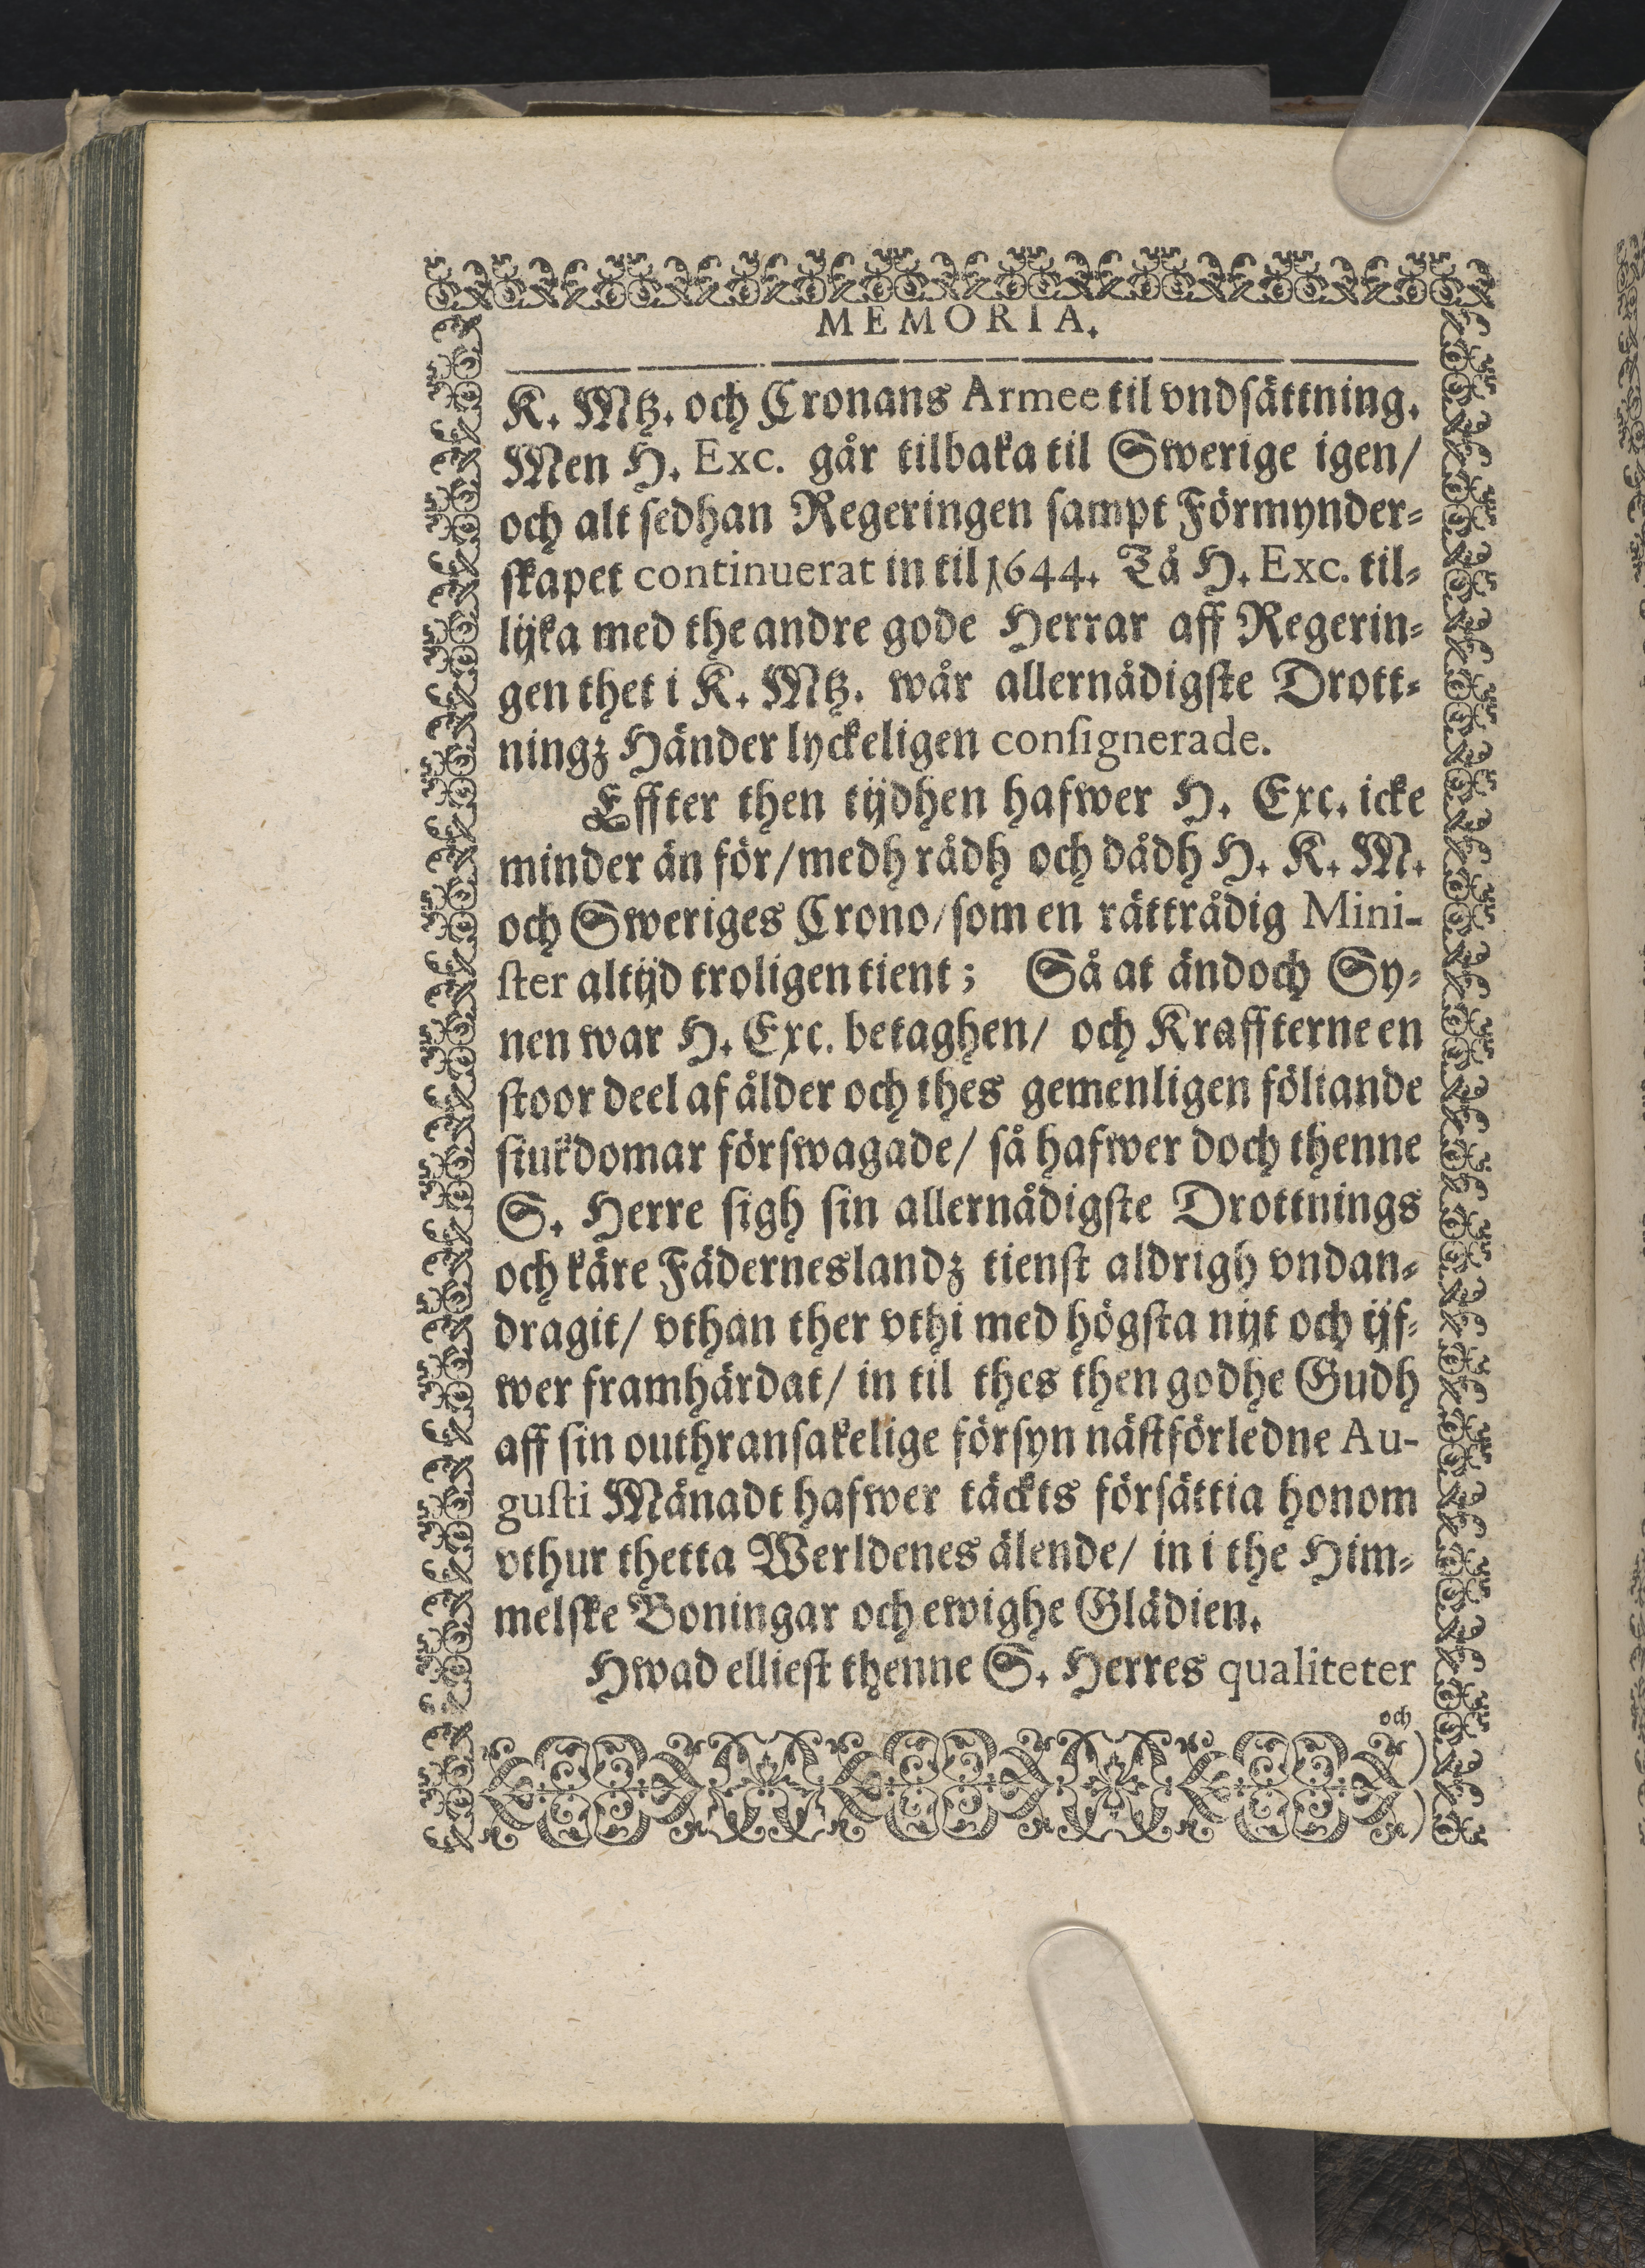 MEMORIA.
K. Mtz. och Cronans Armee til vndsättning.
Men H. Exc. går tilbaka til Swerige igen/
och alt sedhan Regeringen sampt Förmynder-
skapet continuerat in til 1644. Tå H. Exc. til-
lijka med the andre gode Herrar aff Regerin-
gen thet i K. Mtz. wår allernådigste Drott-
ningz Händer lyckeligen consignerade.
Effter then tijdhen hafwer H. Exc. icke
minder än för/ medh rådh och dådh H. K. M.
och Sweriges Crono/ som en rättrådig Mini-
ster altijd troligen tient; Så at ändoch Sy-
nen war H. Exc. betaghen/ och Kraffterne en
stoor deel af ålder och thes gemenligen föliande
siukdomar förswagade/ så hafwer doch thenne
S. Herre sigh sin allernådigste Drottnings
och käre Fäderneslandz tienst aldrigh vndan-
dragit/ vthan ther vthi med högsta nijt och ijf-
wer framhärdat/ in til thes then godhe Gudh
aff sin outhransakelige försyn nästförledne Au-
gusti Månadt hafwer täckts försättia honom
vthur thetta Werldenes älende/ in i the Him-
melske Boningar och ewighe Glädien.
Hwad elliest thenne S. Herres qualiteter
och